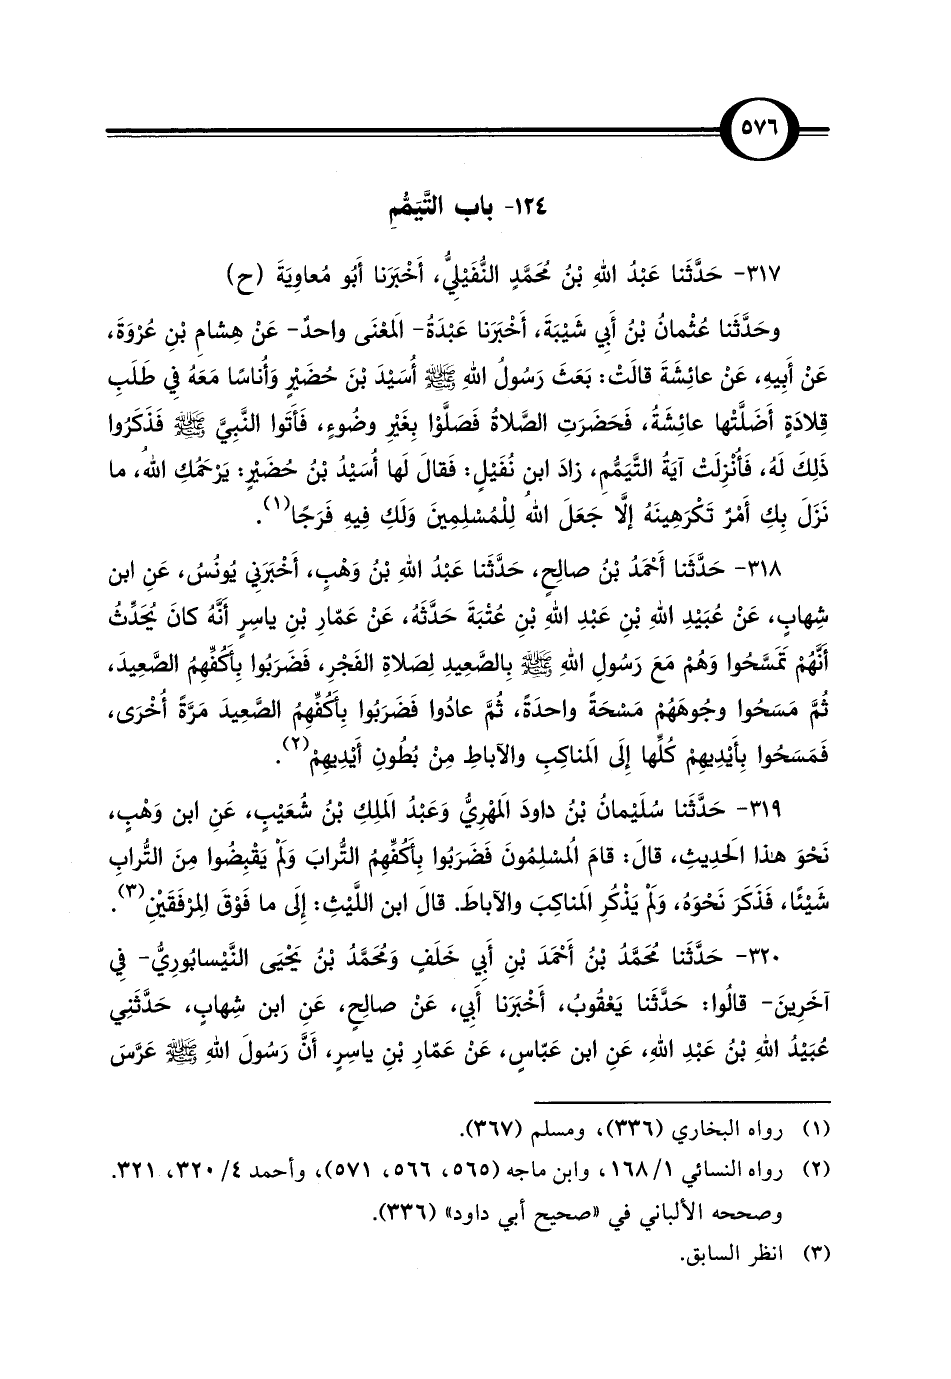 ٥٧٦
١٢٤- باب التَّيَمُّمِ
٣١٧- حَدَّثَنا عَبْدُ اللهِ بْنُ مُحَمَّدٍ النُّفَيْلِيُّ، أَخْبَرَنا أَبُو مُعاوِيَةَ (ح)
وحَدَّثَنا عُثْمانُ بْنُ أَبِي شَيْبَةَ، أَخْبَرَنا عَبْدَةُ- المَعْنَى واحدٌ- عَنْ هِشامِ بْنِ عُرْوَةَ،
عَنْ أَبِيهِ، عَنْ عائِشَةَ قالَتْ: بَعَثَ رَسُولُ اللهِ ﷺ أُسَيْدَ بْنَ حُضَيْرٍ وَأُناسًا مَعَهُ فِي طَلَبِ
قِلادَةٍ أَضَلَّتْها عائِشَةُ، فَحَضَرَتِ الصَّلاةُ فَصَلَّوْا بِغَيْرِ وضُوءٍ، فَأَتَوا النَّبِيَّ ﷺ فَذَكَرُوا
ذَلِكَ لَهُ، فَأُنْزِلَتْ آيَةُ التَّيَمُّمِ، زادَ ابن نُفَيْلٍ: فَقالَ لَها أُسَيْدُ بْنُ حُضَيْرٍ: يَرْحَمُكِ اللهُ، ما
نَزَلَ بِكِ أَمْرٌ تَكْرَهِينَهُ إلَّا جَعَلَ اللهُ لِلْمُسْلِمِينَ وَلَكِ فِيهِ فَرَجًا(١).
٣١٨- حَدَّثَنا أَحْمَدُ بْنُ صالِحٍ، حَدَّثَنا عَبْدُ اللهِ بْنُ وَهْبٍ، أَخْبَرَنِي يُونُسُ، عَنِ ابن
شِهابٍ، عَنْ عُبَيْدِ اللهِ بْنِ عَبْدِ اللهِ بْنِ عُتْبَةَ حَدَّثَهُ، عَنْ عَمّارِ بْنِ ياسِرٍ أَنَّهُ كانَ يُحَدِّثُ
أَنَّهُمْ تَمَسَّحُوا وَهُمْ مَعَ رَسُولِ اللهِ ﷺ بِالصَّعِيدِ لِصَلاةِ الفَجْرِ، فَضَرَبُوا بِأَكُفِّهِمُ الصَّعِيدَ،
ثُمَّ مَسَحُوا وجُوهَهُمْ مَسْحَةً واحِدَةً، ثُمَّ عادُوا فَضَرَبُوا بِأَكُفِّهِمُ الصَّعِيدَ مَرَّةً أُخْرَى،
فَمَسَحُوا بِأَيْدِيهِمْ كُلِّها إِلَى المَناكِبِ والآباطِ مِنْ بُطُونِ أَيْدِيهِمْ(٢).
٣١٩- حَدَّثَنا سُلَيْمانُ بْنُ داودَ المَهْرِيُّ وَعَبْدُ المَلِكِ بْنُ شُعَيْبٍ، عَنِ ابن وَهْبٍ،
نَحْوَ هذا الحَدِيثِ، قالَ: قامَ المُسْلِمُونَ فَضَرَبُوا بِأَكُفِّهِمُ التُّرابَ وَلَمْ يَقْبِضُوا مِنَ التُّرابِ
شَيْئًا، فَذَكَرَ نَحْوَهُ، وَلَمْ يَذْكُرِ المَناكِبَ والآباطَ. قالَ ابن اللَّيْثِ: إِلَى ما فَوْقَ المِرْفَقَيْنِ(٣).
٣٢٠- حَدَّثَنا مُحَمَّدُ بْنُ أَحْمَدَ بْنِ أَبِي خَلَفٍ وَمُحَمَّدُ بْنُ يَحْيَى النَّيْسابُورِيُّ- فِي
آخَرِينَ- قالُوا: حَدَّثَنا يَعْقُوبُ، أَخْبَرَنا أَبِي، عَنْ صالِحٍ، عَنِ ابن شِهابٍ، حَدَّثَنِي
عُبَيْدُ اللهِ بْنُ عَبْدِ اللهِ، عَنِ ابن عَبّاسٍ، عَنْ عَمّارِ بْنِ ياسِرٍ، أَنَّ رَسُولَ اللهِ ﷺ عَرَّسَ
(١) رواه البخاري (٣٣٦)، ومسلم (٣٦٧).
(٢) رواه النسائي ١/ ١٦٨، وابن ماجه (٥٦٥، ٥٦٦، ٥٧١)، وأحمد ٤/ ٣٢٠، ٣٢١.
وصححه الألباني في «صحيح أبي داود» (٣٣٦).
(٣) انظر السابق.